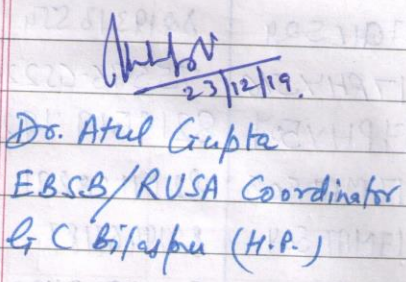 23/12/19.
Dr. Atul Gupta
EBSB/RUSA Coordinator
G C Bilaspur (H.P.)